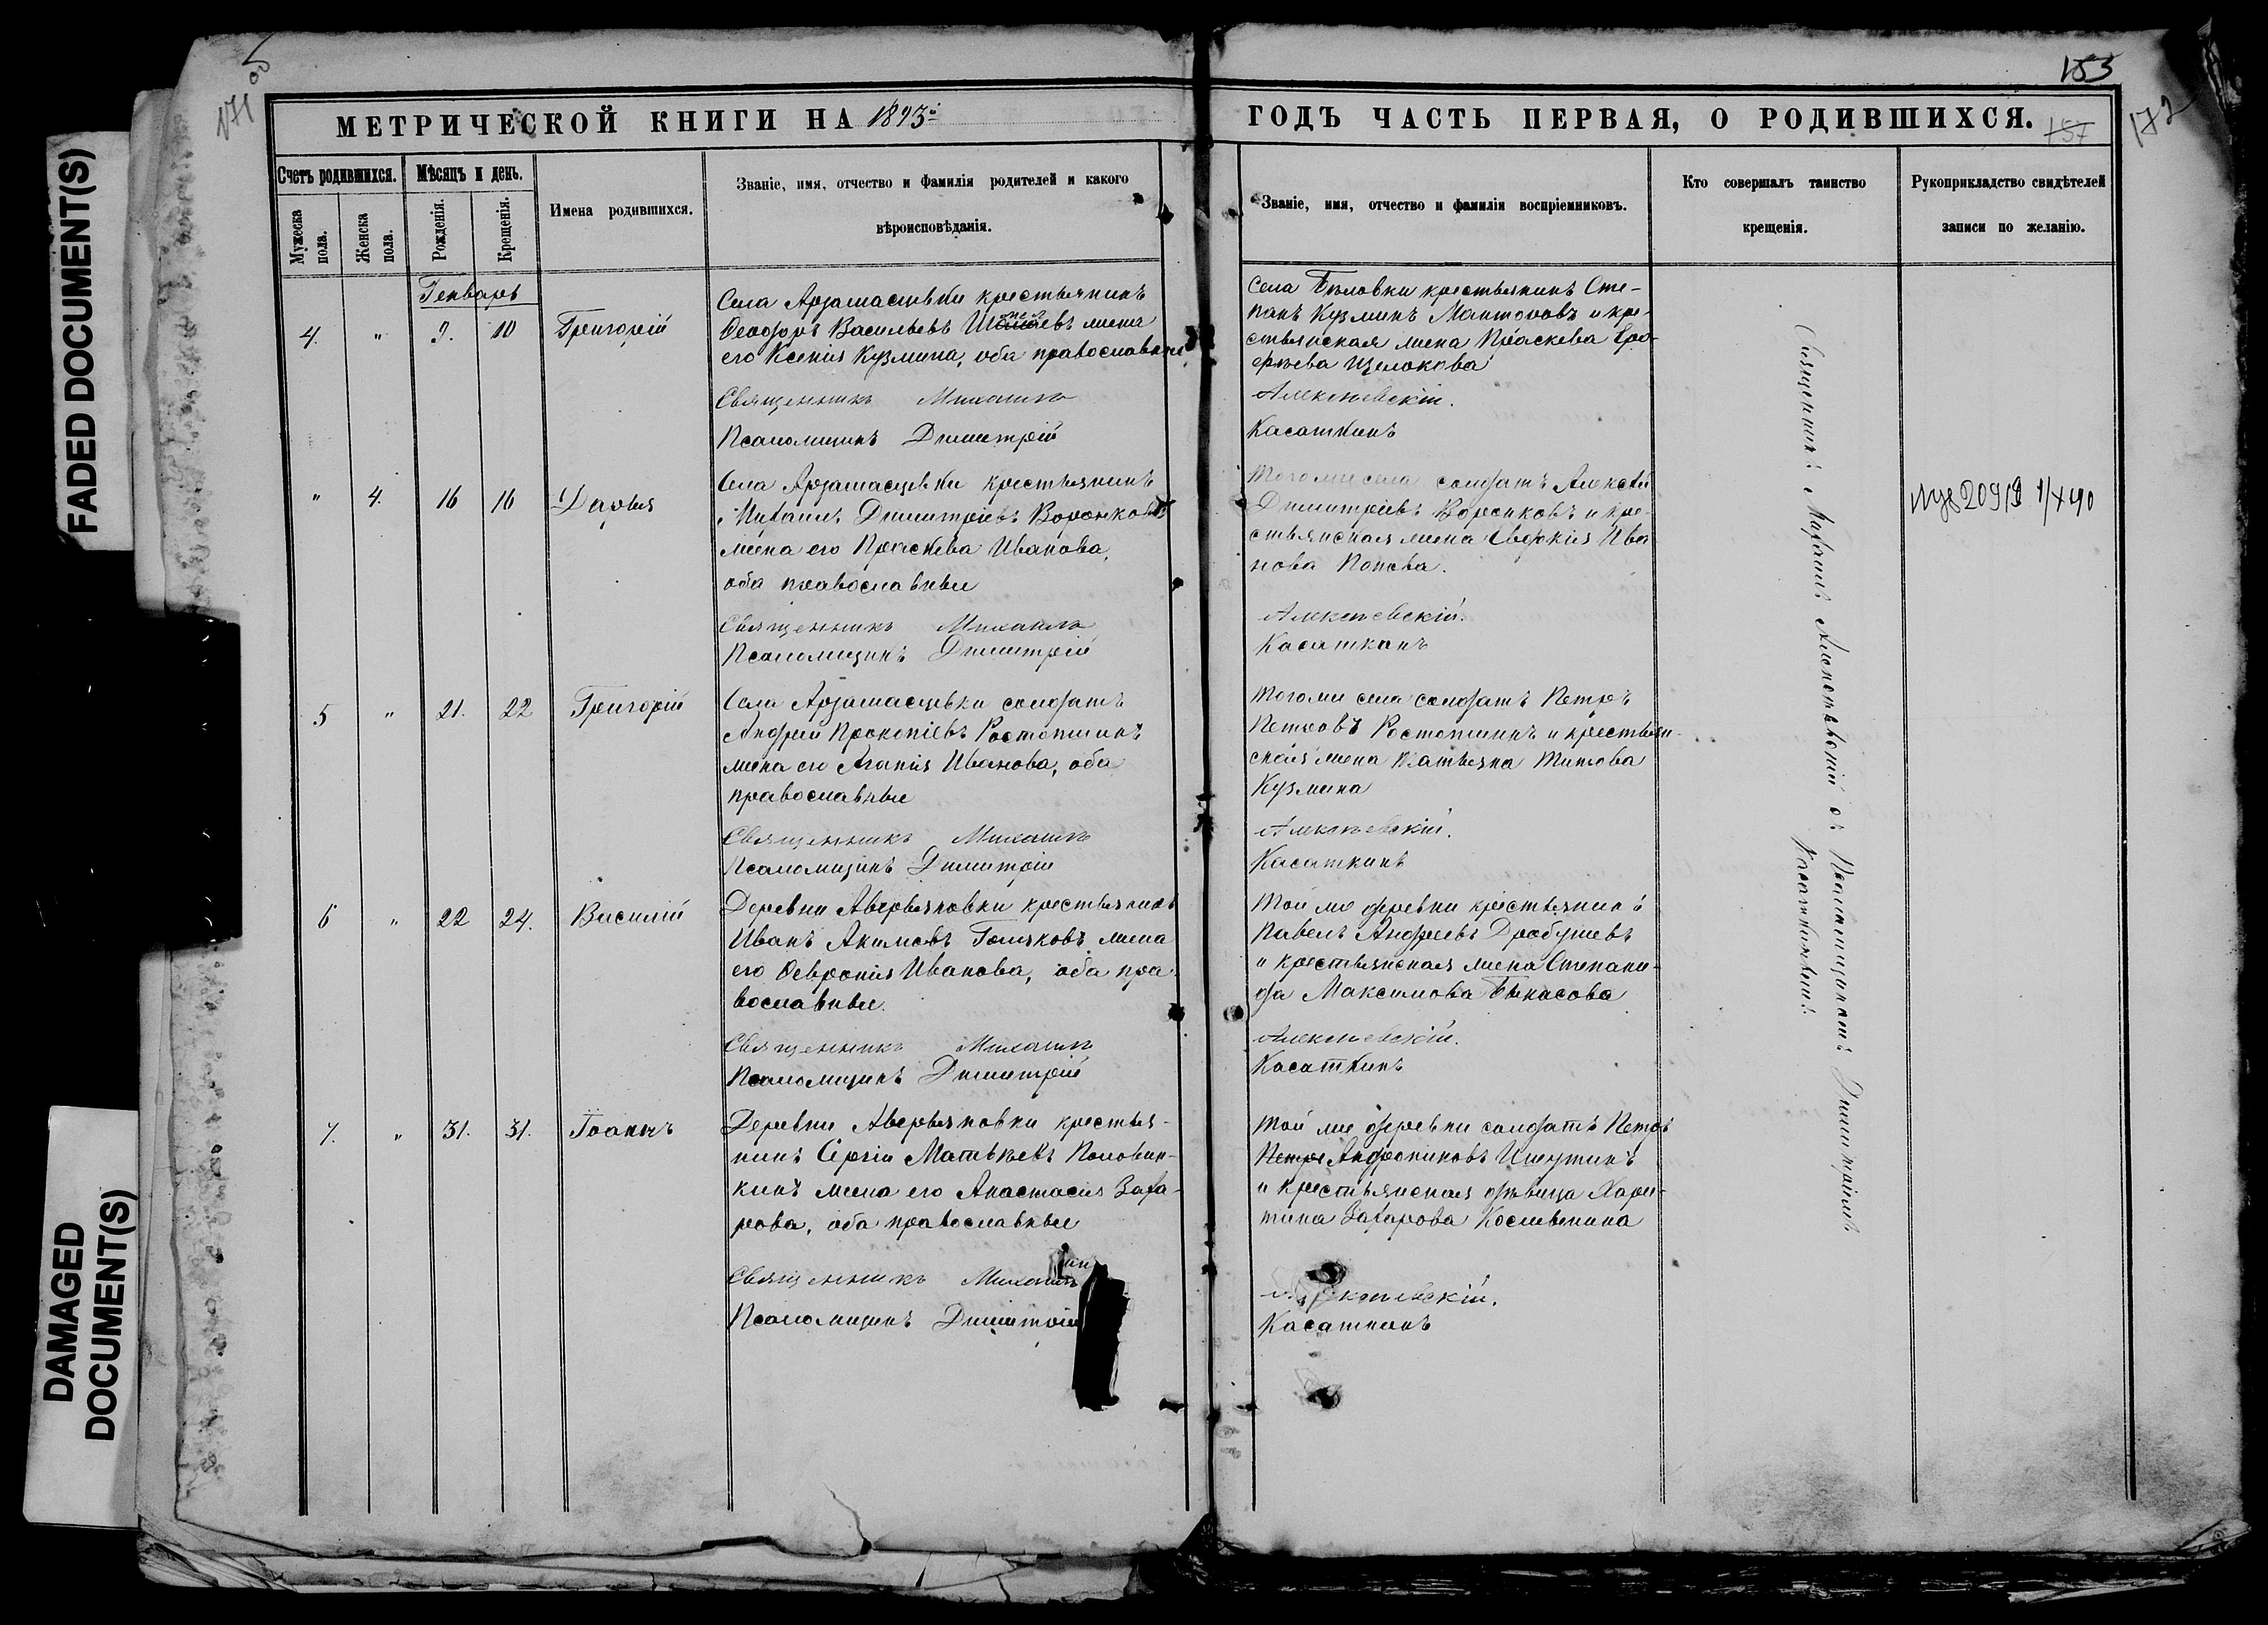 FADED DOCUMENT(S)
DAMAGED DOCUMENT(S)
171
153
172
157
МЕТРИЧЕСКОЙ КНИГИ НА 1893й
ГОДЪ ЧАСТЬ ПЕРВАЯ, О РОДИВШИХСЯ.
Счетъ родившихся.
Мужеска пола.
Женска пола.
Мѣсяцъ и день.
Рожденія.
Крещенія.
Имена родившихся.
Званіе, имя, отчество и фамилія родителей и какого
вѣроисповѣданія.
Званіе, имя, отчество и фамилія воспріемниковъ.
Кто совершалъ таинство
крещенія.
Рукоприкладство свидѣтелей
записи по желанію.
Генварь
4. " 9. 10 Григорій
Села Арзамасцевки крестьянинъ
Ѳеодоръ Васильевъ жена
его Ксенія Кузмина, оба православные
Священникъ Михаилъ
Псаломщикъ Димитрій
Села Бѣловки крестьянинъ Сте-
панъ Кузминъ Мантоновъ и кре-
стьянская жена Праскева Еро-
фѣева Щелокова
Алексѣевскій.
Касаткинъ
" 4. 16 16 Дарья
Села Арзамасцевки крестьянинъ
Михаилъ Димитріевъ Воронковъ
жена его Праскева Иванова,
оба православные
Священникъ Михаилъ
Псаломщикъ Димитрій
Того же села солдатъ Алексѣй
Димитріевъ Воронковъ и кре-
стьянская жена Евдокія Ива
нова Попова.
Алексѣевскій.
Касаткинъ
5 " 21. 22 Григорій
Села Арзамасцевки солдатъ
Андрей Прокопіевъ Ростопшинъ
жена его Агапія Иванова, оба
православные
Священникъ Михаилъ
Псаломщикъ Димитрій
Того же села солдатъ Петръ
Петровъ Ростопшинъ и крестьян-
ская жена Татьяна Титова
Кузмина
Алексѣевскій.
Касаткинъ
6 " 22 24. Василій
Деревни Аверьяновки крестьянинъ
Иванъ Акимовъ жена
его Ѳевронія Иванова, оба пра
вославные.
Священникъ Михаилъ
Псаломщикъ Димитрій
Той же деревни крестьянинъ
Павелъ Андреевъ Дробушевъ
и крестьянская жена Степани-
да Максимова
Алексѣевскій.
Касаткинъ
7. " 31. 31. Іоаннъ
Деревни Аверьяновки крестья-
нинъ Сергій Матвѣевъ Половин-
кинъ жена его Анастасія Заха-
рова, оба православные
Священникъ Михаилъ
Псаломщикъ Димитрій
Той же деревни солдатъ Петръ
Петръ Андрониковъ Ишутинъ
и крестьянская дѣвица Хари-
тина Захарова
Алексѣевскій.
Касаткинъ
Священникъ Михаилъ Алексѣевскій съ Псаломщикомъ Димитріемъ
Касаткинымъ.